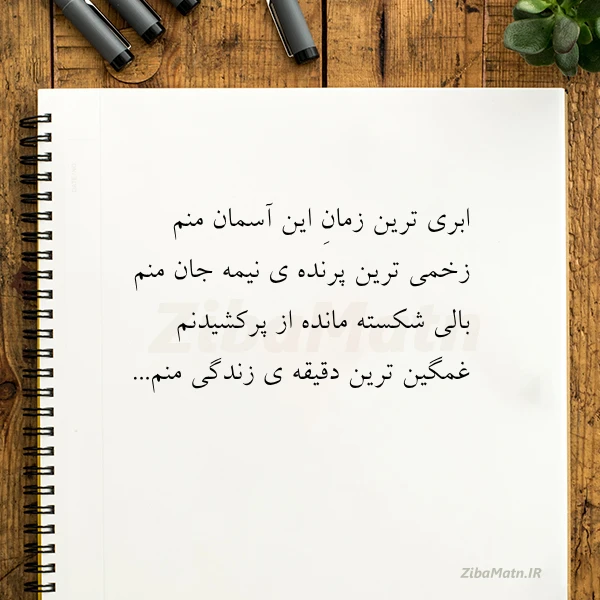 ابری ترین زمانِ این آسمان منم
زخمی ترین پرنده ی نیمه جان منم
بالی شکسته مانده از پرکشیدنم
غمگین ترین دقیقه ی زندگی منم...
ZibaMatn
ZibaMatn.IR